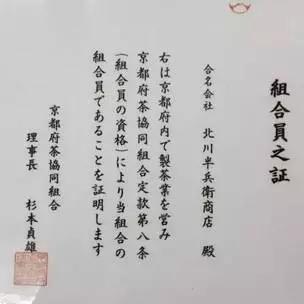 組合員之証
合名会社 北川半兵衛商店 殿
右は京都府内で製茶業を営み
京都府茶協同組合定款第八条
(組合員の資格)により当組合の
組合員であることを証明します
京都府茶協同組合
理事長 杉本貞雄